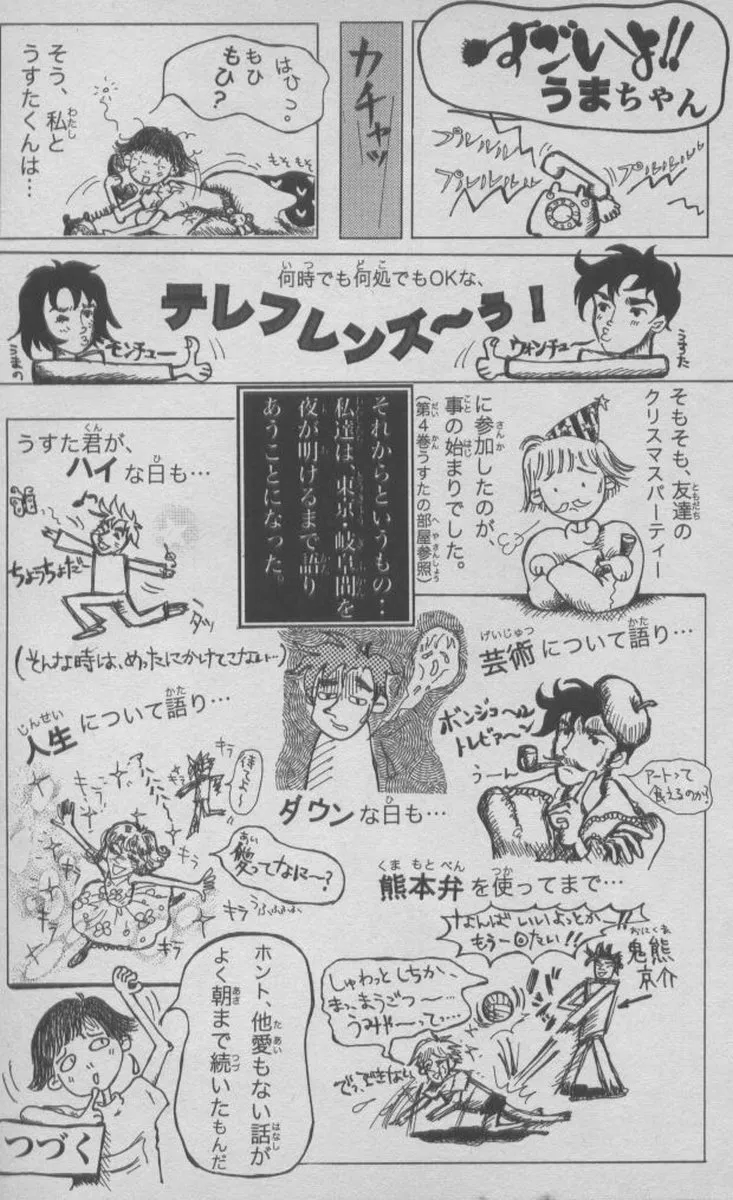 すごいよ!!
うまちゃん
プルルルル
プルルルル
プルルルル
カチャッ
はひっ。
もひ
もひ？
もそもそ
そう、私と
うすたくんは…
何時でも何処でもOKな、
テレフレンズ〜う！
ウォンチュー
うすた
モンチュー
うまの
そもそも、友達の
クリスマスパーティー
に参加したのが、
事の始まりでした。
（第4巻うすたの部屋参照）
それからというもの‥
私達は、東京・岐阜間を
夜が明けるまで語り
あうことになった。
うすた君が、
ハイな日も…
ちょうちょだー
ダッ
（そんな時は、めったにかけてこない…）
ダウンな日も…
芸術について語り…
ボンジュ〜ル
トレビァ〜ン
うーん
アートって
食えるのか?
人生について語り…
キラ
キラ
待てよ〜
アハハ
愛ってなに〜?
キラ
キラ
うふふふふ
キラ
熊本弁を使ってまで…
なんばしいよっとか
もう一回たい!!
鬼熊
京介
しゅわっとしちか、
まっこまうごつ〜…
うみゃーって…
でっできない
ホント、他愛もない話が
よく朝まで続いたもんだ
つづく